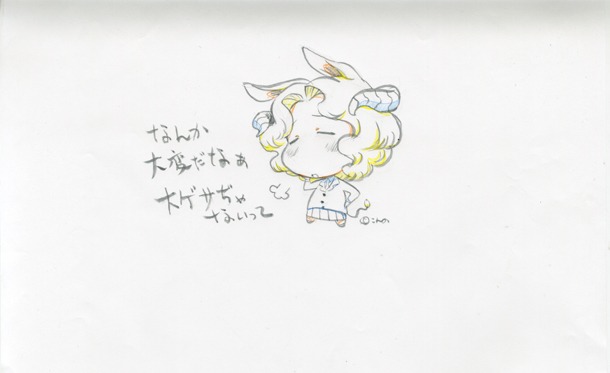 なんか
大変だなぁ
大ゲサぢゃ
ないって